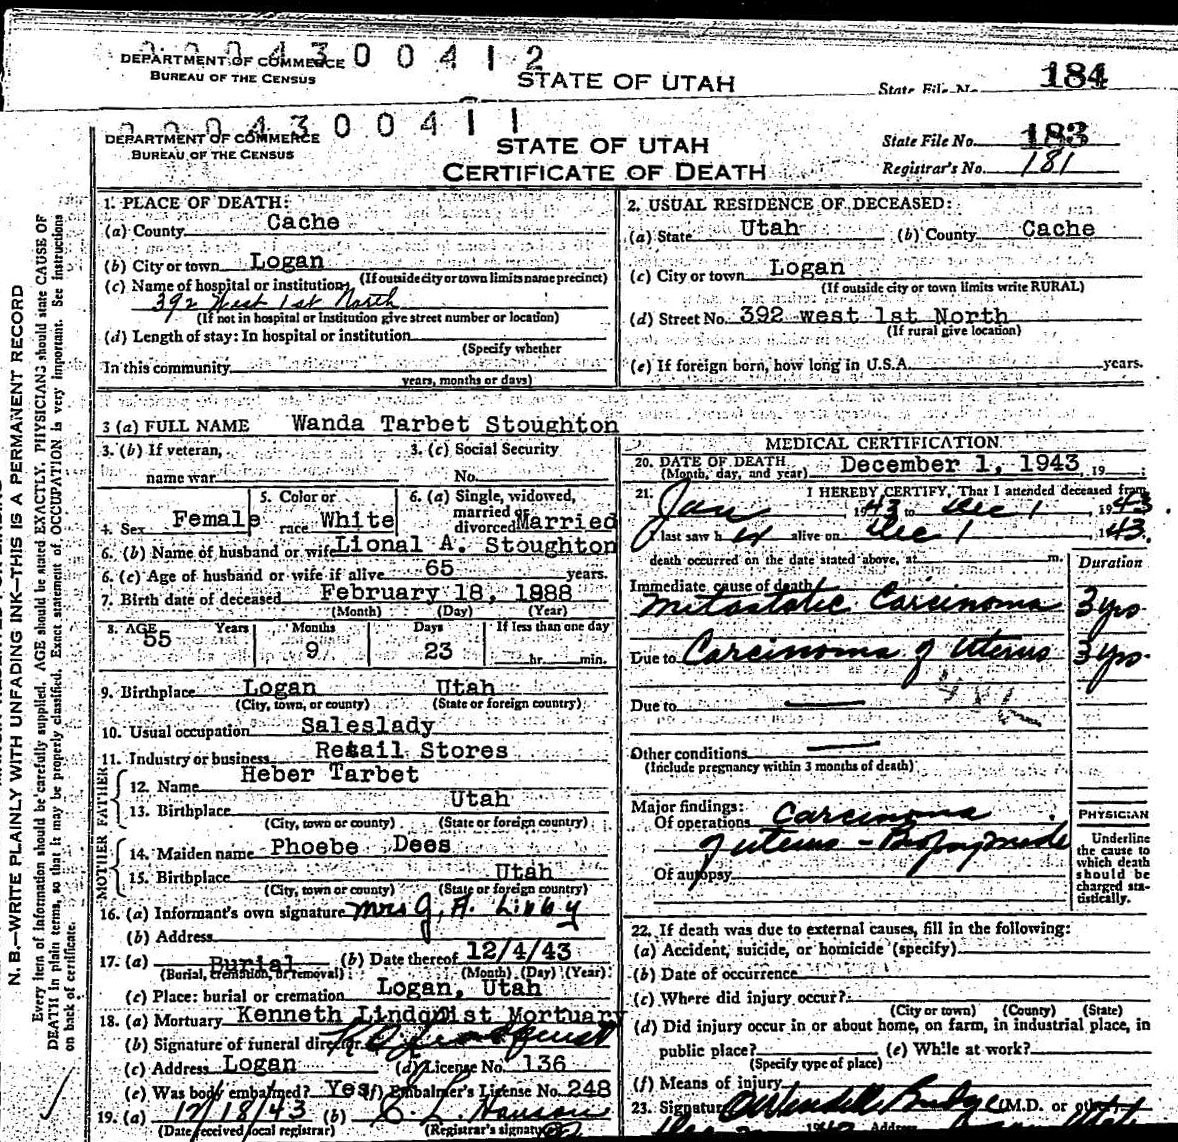 0 0 0 4 3 0 0 4 1 2
DEPARTMENT OF COMMERCE
BUREAU OF THE CENSUS
STATE OF UTAH
State File No.
184
0 0 0 4 3 0 0 4 1 1
DEPARTMENT OF COMMERCE
BUREAU OF THE CENSUS
STATE OF UTAH
CERTIFICATE OF DEATH
State File No. 183
Registrar's No. 181
N. B.—WRITE PLAINLY WITH UNFADING INK—THIS IS A PERMANENT RECORD
Every item of information should be carefully supplied. AGE should be stated EXACTLY. PHYSICIANS should state CAUSE OF
DEATH in plain terms, so that it may be properly classified. Exact statement of OCCUPATION is very important. See instructions
on back of certificate.
1. PLACE OF DEATH:
(a) County Cache
(b) City or town Logan
(If outside city or town limits name precinct)
(c) Name of hospital or institution:
392 West 1st North
(If not in hospital or institution give street number or location)
(d) Length of stay: In hospital or institution
(Specify whether
In this community
years, months or days)
2. USUAL RESIDENCE OF DECEASED:
(a) State Utah (b) County Cache
(c) City or town Logan
(If outside city or town limits write RURAL)
(d) Street No. 392 west 1st North
(If rural give location)
(e) If foreign born, how long in U.S.A. years.
3 (a) FULL NAME Wanda Tarbet Stoughton
3. (b) If veteran,
name war
3. (c) Social Security
No.
4. Sex Female
5. Color or
race White
6. (a) Single, widowed,
married or
divorced Married
6. (b) Name of husband or wife Lional A. Stoughton
6. (c) Age of husband or wife if alive 65 years.
7. Birth date of deceased February 18, 1888
(Month) (Day) (Year)
8. AGE Years Months Days If less than one day
55 9 23 hr. min.
9. Birthplace Logan Utah
(City, town, or county) (State or foreign country)
10. Usual occupation Saleslady
11. Industry or business Retail Stores
FATHER
12. Name Heber Tarbet
13. Birthplace Utah
(City, town or county) (State or foreign country)
MOTHER
14. Maiden name Phoebe Dees
15. Birthplace Utah
(City, town or county) (State or foreign country)
16. (a) Informant's own signature Mrs G. A. Linby
(b) Address
17. (a) Burial (b) Date thereof 12/4/43
(Burial, cremation, or removal) (Month) (Day) (Year)
(c) Place: burial or cremation Logan, Utah
18. (a) Mortuary Kenneth Lindquist Mortuary
(b) Signature of funeral director
(c) Address Logan (d) License No. 136
(e) Was body embalmed? Yes (f) Embalmer's License No. 248
19. (a) 12/18/43 (b) C. L. Hanson
(Date received local registrar) (Registrar's signature)
MEDICAL CERTIFICATION
20. DATE OF DEATH
(Month, day, and year) December 1, 1943 19
21. I HEREBY CERTIFY, That I attended deceased from
Jan 1943 to Dec 1, 1943.
I last saw h er alive on Dec 1 1943.
death occurred on the date stated above, at m.
Duration
Immediate cause of death
Metastatic Carcinoma 3 yrs
Due to Carcinoma of Uterus 3 yrs.
Due to
Other conditions
(Include pregnancy within 3 months of death)
Major findings:
Of operations Carcinoma
of uterus - Biopsy made
Of autopsy
PHYSICIAN
Underline
the cause to
which death
should be
charged sta-
tistically.
22. If death was due to external causes, fill in the following:
(a) Accident, suicide, or homicide (specify)
(b) Date of occurrence
(c) Where did injury occur?
(City or town) (County) (State)
(d) Did injury occur in or about home, on farm, in industrial place, in
public place? (e) While at work?
(Specify type of place)
(f) Means of injury
23. Signature O. Wendell Budge (M.D. or other)
Address